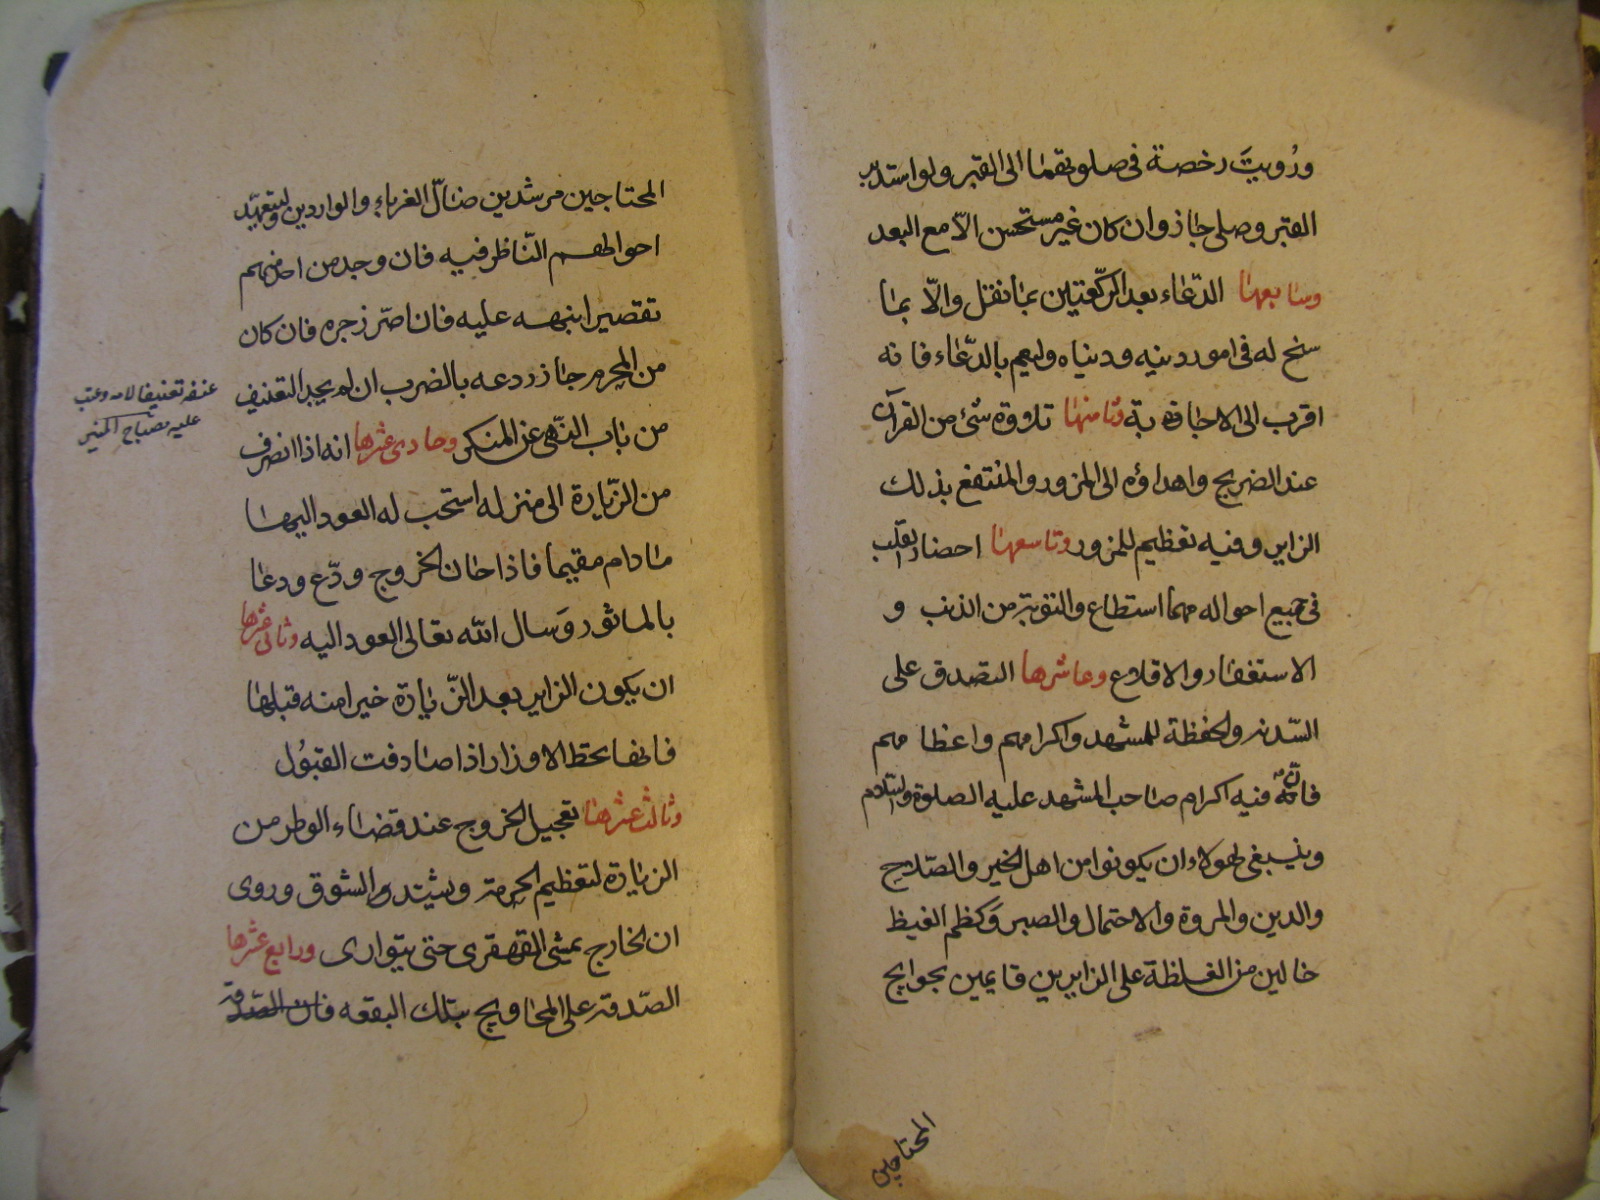 ورُويتَ رخصة فى صلوتهما الى القبر ولو استدبر
القبر وصلى جاز وان كان غير مستحسن الّا مع البعد
وسابعها الدّعاء بعد الركّعتين بما نقل والّا بما
سنح له فى امور دينه ودنياه وليعم بالدّعاء فانه
اقرب الى الاجابة وثامنها تلاوة شئ من القرآن
عند الضريح واهداؤه الى المزور والمنتفع بذلك
الزاير وفيه تعظيم للمزور وتاسعها احضار القلب
فى جميع احواله مهما استطاع والتوبة من الذنب و
الاستغفار والاقلاع وعاشرها التصدق على
السّدنه والحفظة للمشهد واكرامهم واعظامهم
فانّ فيه اكرام صاحب المشهد عليه الصلوة والسّلام
وينبغى لهولاء ان يكونوا من اهل الخير والصّلاح
والدين والمروة والاحتمال والصبر وَكظم الغيظ
خالين من الغلظة على الزايرين قايمين بحوايج
المحتاجين
المحتاجين مرشدين ضالّ الغرباء والواردين وليتعهّد
احوالهم النّاظر فيه فان وجد من احد منهم
تقصيرا نبهه عليه فان اصّر زجره فان كان
من المحرم جاز ردعه بالضرب ان لم يجد التعنيف
من باب النّهى عن المنكر وحادى عشرها انه اذا انصرف
من الزّيارة الى منزله استحب له العود اليها
مادام مقيما فاذا حان الخروج ودّع ودعا
بالماثور وَسال الله تعالى العود اليه وثانى عشرها
ان يكون الزاير بعد الزّيارة خيرا منه قبلها
فانها تحط الاوزار اذا صادفت القبُول
وثالث عشرها تعجيل الخروج عند قضاء الوطر من
الزيارة لتعظيم الحرمة ويشتد والشوق وروى
ان الخارج يمشى القهقرى حتى يتوارى ورابع عشرها
الصّدقة على المحاويج بتلك البقعه فان الصّدقة
عنفه تعنيفا لامه وعتب
عليه مصباح المنير